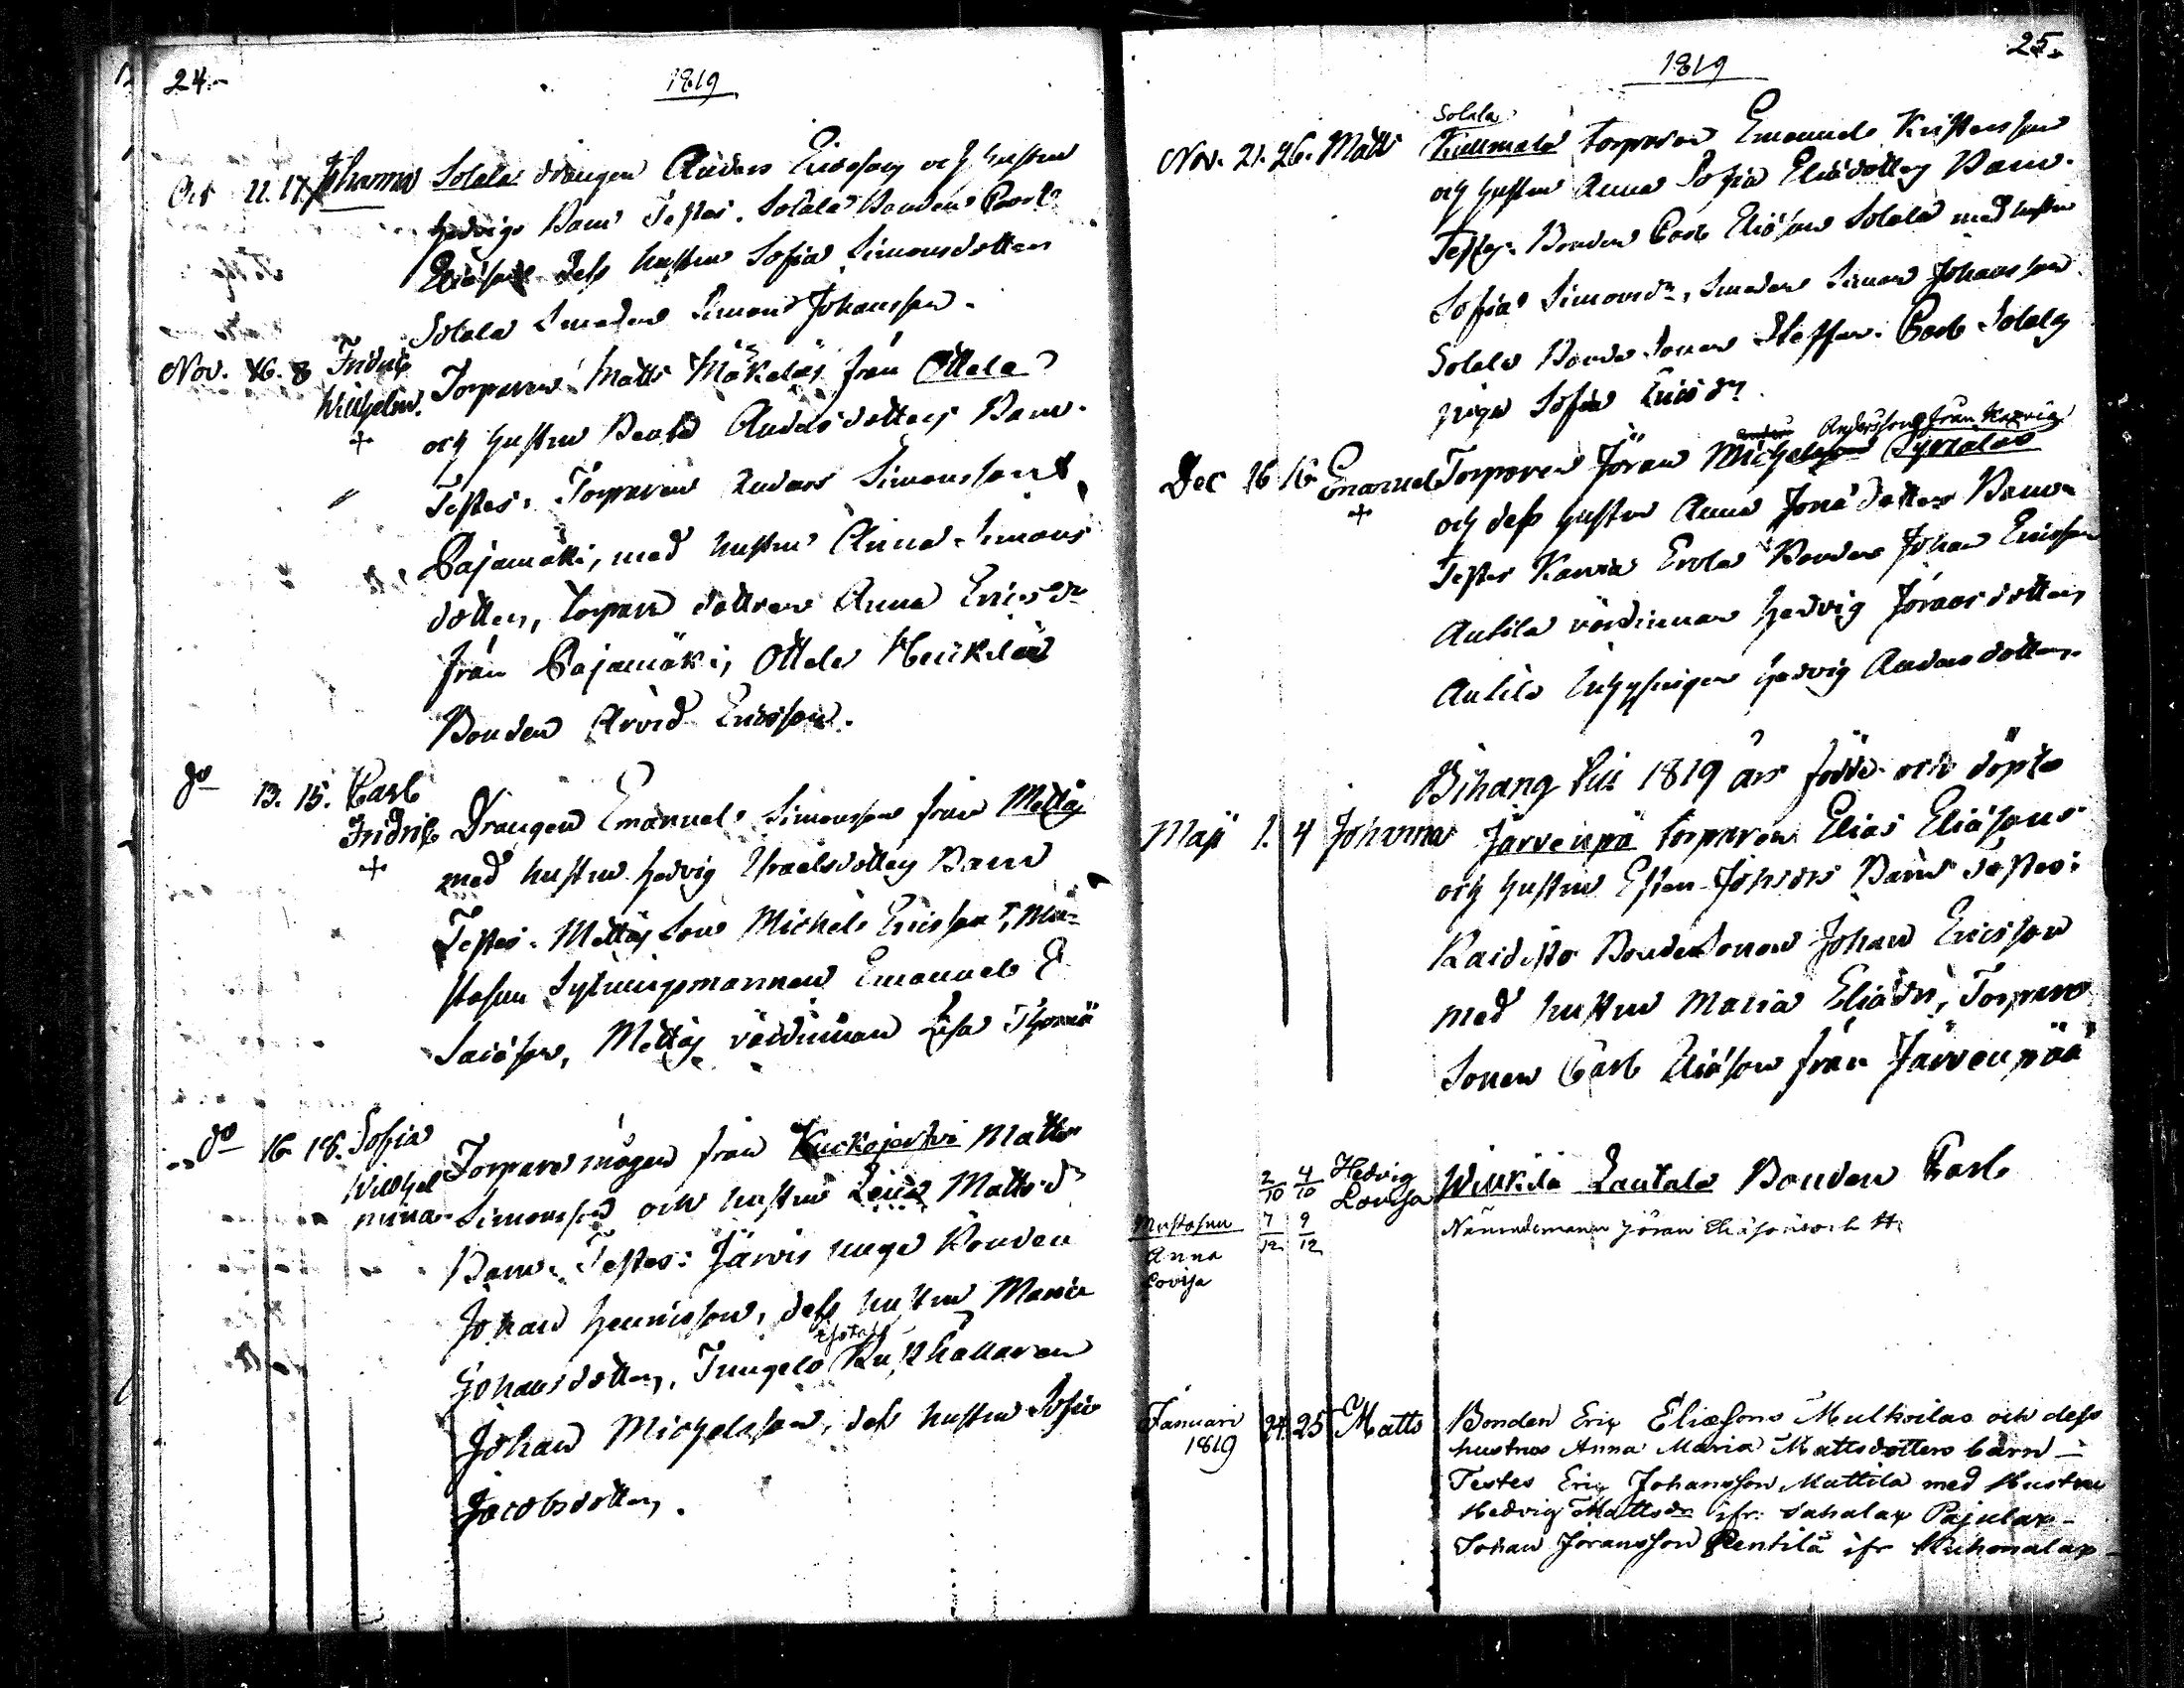 24.
1819
Oct 11. 17. Johanna Solala drängen Anders Ericsson och hustru
Hedvigs Barn Testes. Solala Bonden Carl
Eliäson dess hustru Sofia Simonsdotter
Solala Smeden Simon Johansson.
Nov. 6. 8 Fridric Wilhelm. + Torparen Matts Mäkeläs från Ottela
och hustru Beata Andersdotters Barn.
Testes. Torparen Anders Simonsson
Pajamäki, med hustru Anna Simons
dotter, torpare dottren Anna Ericsdr
från Pajamäki, Ottela Heickilä
Bonden Arvid Ericsson.
do 13. 15. Carl Fridric + Drängen Emanuel Simonsson från Mellaj
med hustru Hedvig Israelsdotters Barn
Testes. Mellaj Son Michel Ericsson, Mu-
stasuu Sytningsmannen Emanuel E
saiäson, Mellaj värdinnan Lisa
do 16. 18. Sofia Wilhelmina Torparemågen från Kuckojerfvi Matts
Simonsson och hustru Lena Mattsdr
Barn. Testes: Järvis unge Bonden
Johan Henricsson, dess hustru Maria
Johansdotter, Jungela Rusthållaren
Johan Michelsson, dess hustru Sofia
Jacobsdotter.
25.
1819
Solala
Nov. 21. 26. Matts torparen Emanuel Kristersson
och hustru Anna Sofia Eliädotters Barn.
Testes. Bonden Carl Eliäson Solala med hustru
Sofia Simonsdr, Smeden Simon Johansson
Solala Bonde Sonen Steffan. Carl Solala
piga Sofia Ericsdr.
Andersson från Karvia
Dec 16 16 Emanuel + Torparen Jöran Michelsson Syrialas
och dess hustru Anna Jonädotters Barn
Testes Karvia Erola Bonden Johan Ericsson
Antila värdinnan Hedvig Jöransdotter,
Antila Inhysingen Hedvig Andersdotter.
Bihang till 1819 års födde och döpte
Maji 1. 4 Johanna Järvenpä torparen Elias Eliäsons
och hustru Ester Johsdrs Barn testes:
Raidisto Bondesonen Johan Ericsson
med hustru Maria Eliädr, Torpare
Sonen Carl Eliäson från Järvenpää
2/10 4/10 Hedvig Lovisa Wilkilä Lautala Bonden Carl
Mustasuu 7/12 9/12 Nämndeman Jöran Eliäsons och H.
Anna
Lovisa
Januari 1819 24. 25 Matts Bonden Eric Eliæsons Mulkoilas och dess
hustrus Anna Maria Mattsdotters barn
Testes Eric Johansson Mattila med Hustru
Hedvig Mattsdr ifr. Sahalax Pajulax
Johan Jöransson Pentilä ifr Kuhmalax